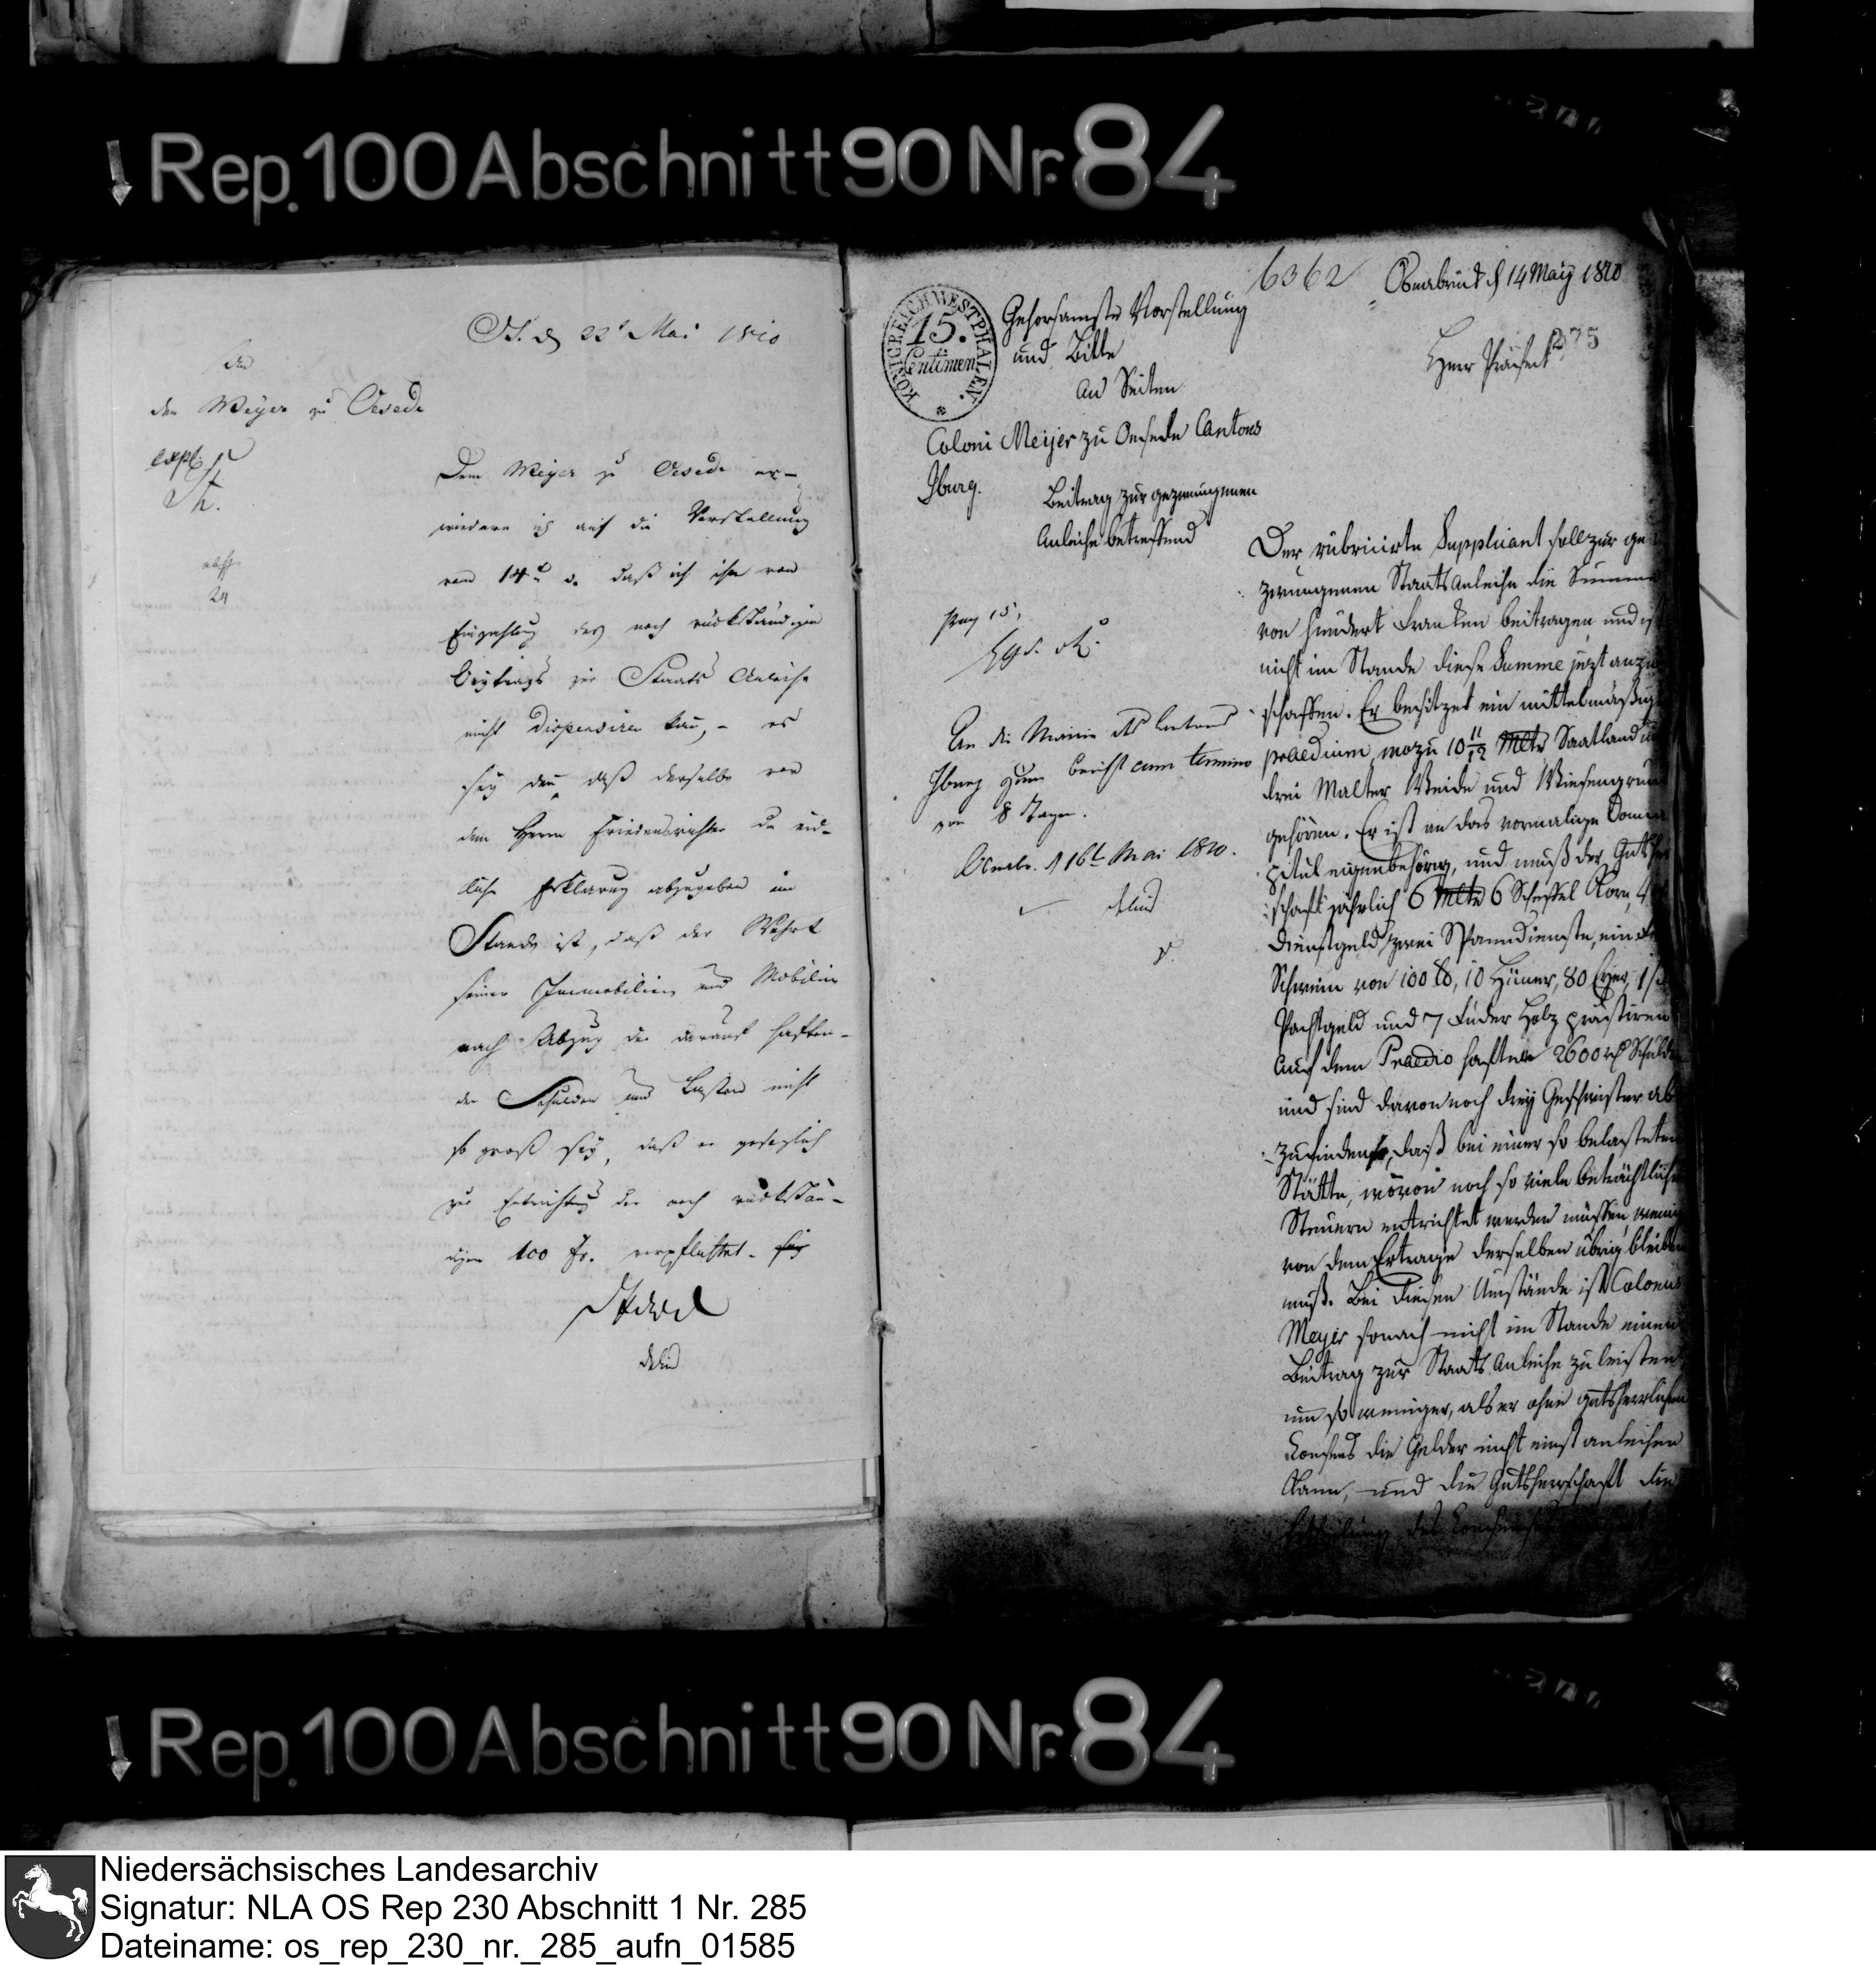 Rep. 100 Abschnitt 90 Nr. 84
O. d 22t Mai 1810
An
den Meyer zu Oesede
expl.
absch.
24
Dem Meyer zu Oesede er-
wiedere ich auf die Vorstellung
vom 14t d. daß ich ihn von
Einzahlung des noch rückständigen
Beytrags zur Staats Anleihe
nicht dispensiren kan, - es
sey den daß derselbe vor
dem Herrn Friedensrichter die eid-
liche Erklarung abzugeben im
Stande ist, daß der Wehrt
seiner Immobilien und Mobilien
nach Abzug der darauf haften-
den Schulden und Lasten nicht
so groß sey, daß er gesezlich
zur Entrichtung der noch rückstän-
digen 100 Fr. verpflichtet sey
6362
Osnabrück d 14 May 1810
275
Herr Präfect
KÖNIGREICH WESTPHALEN.
15.
Centimen
Gehorsamste Vorstellung
und Bitte
an Seiten
Coloni Meijer zu Oesede Cantons
Iburg.
Beitrag zur gezwungenen
Anleihe betreffend
An die Mairie des Cantons
Iburg zum Bericht cum termino
von 8 Tagen.
Osnabr. d 16t Mai 1810.
Der rubricirte Supplicant soll zur ge
zwungenen Staats Anleihe die Summe
von hundert Franken beitragen und ist
nicht im Stande diese Summe jezt anzu
schaffen. Er besitzet ein mittelmäßig
praedium wozu 10 11/12 Mltr Saatland und
drei Malter Weide und Wiesengrund
gehören. Er ist an das vormalige Domca
pitul eigenbehörig, und muß der Gutsher
schaft jährlich 6 Mltr 6 Scheffel Korn, 4
Dienstgeld, zwei Spanndienste, ein
Schwein von 100 lb, 10 Hüner, 80 Eyer, 1
Pachtgeld und 7 Fuder Holz prästiren
Auf dem Praedio haften 2600 rt Schulden
und sind davon noch drey Geschwister ab
zufinden, daß bei einer so belasteten
Stätte, wovon noch so viele beträchtliche
Steuern entrichtet werden müssen wenig
von dem Ertrage derselben übrig bleiben
muß. Bei diesen Umstände ist Colonus
Meyer sonach nicht im Stande einen
Beitrag zur Staats Anleihe zu leisten
um so weniger, als er ohne gutsherrlichen
Consens die Gelder nicht einst anleihen
kann, und die Gutsherrschaft die
Ertheilung des Consenses
Rep. 100 Abschnitt 90 Nr. 84
Niedersächsisches Landesarchiv
Signatur: NLA OS Rep 230 Abschnitt 1 Nr. 285
Dateiname: os_rep_230_nr._285_aufn_01585